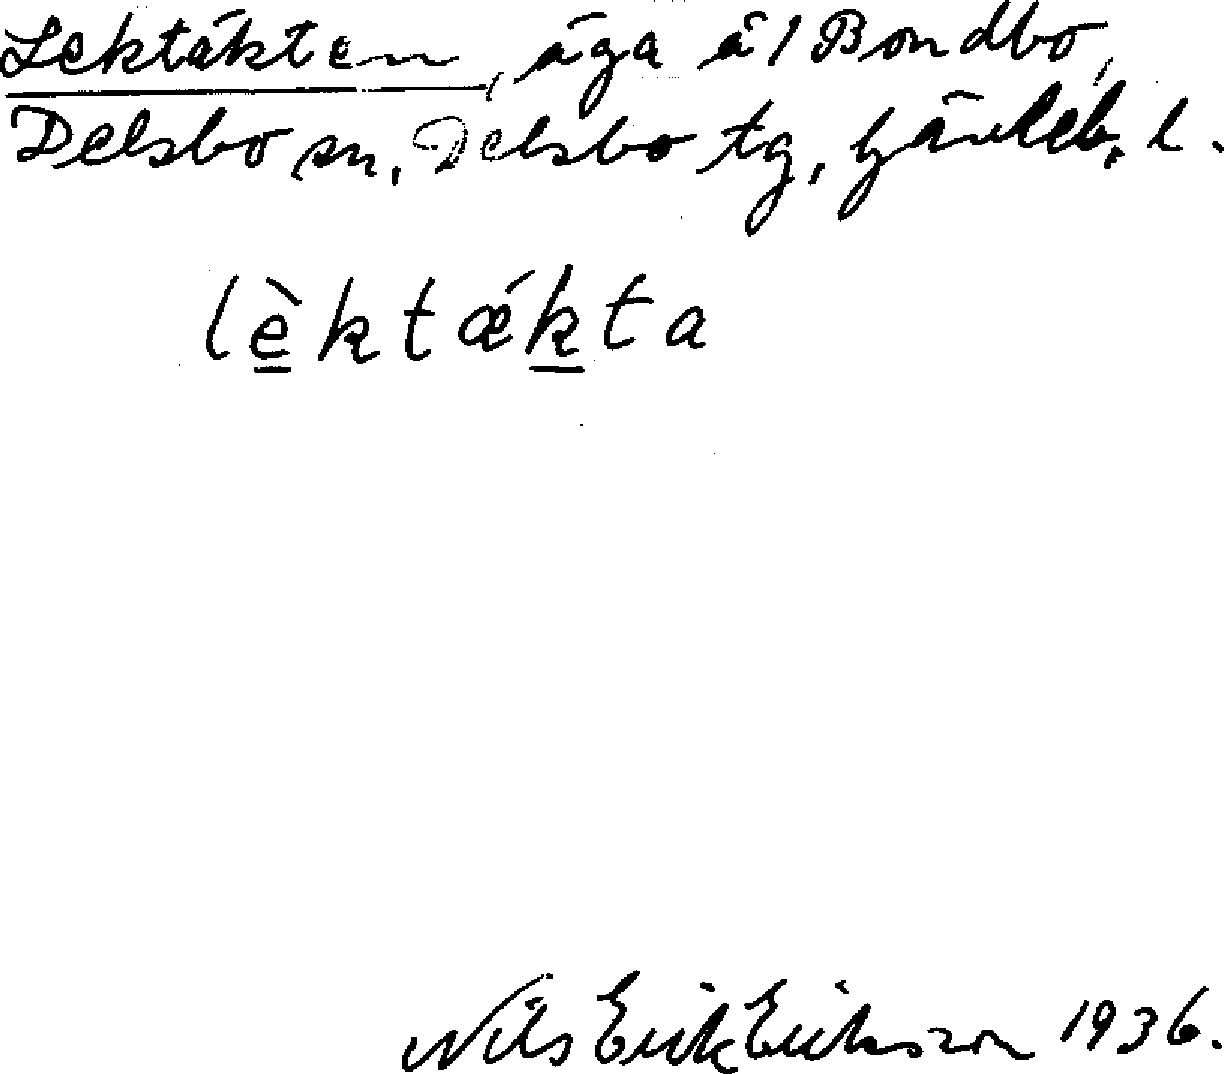 Lektäkten, äga å 1 Bondbo,
Delsbo sn, Delsbo tg, Gävleb. l.
lèktǽkta
Nils Erik Eriksson 1936.